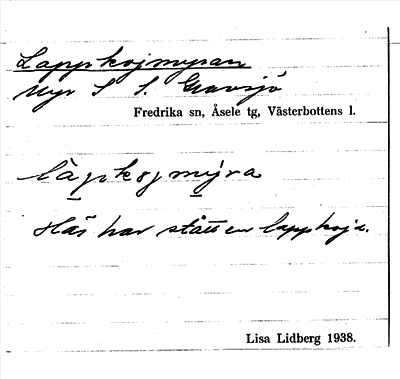 Lappkojmyran
Myr S S. Gransjö
Fredrika sn, Åsele tg, Västerbottens l.
làpkojmýra
Här har stått en lappkoja.
Lisa Lidberg 1938.